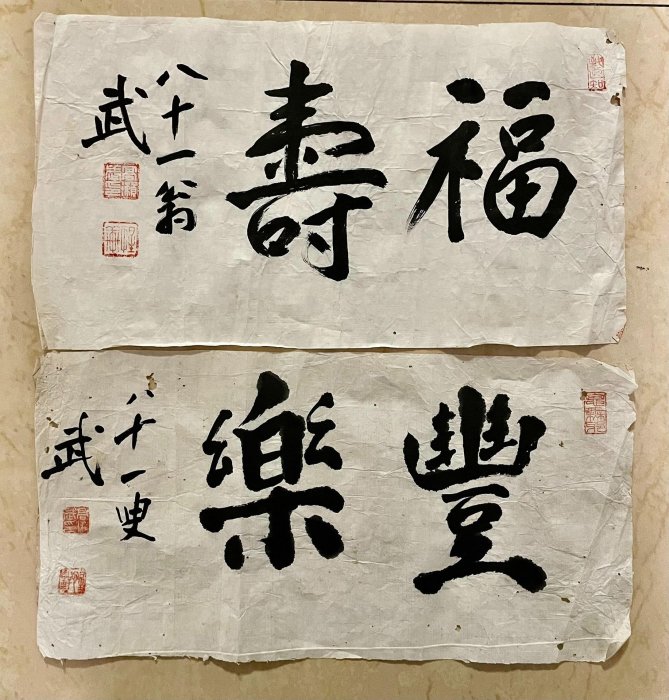 福壽
八十一翁
武
豐樂
八十一叟
武